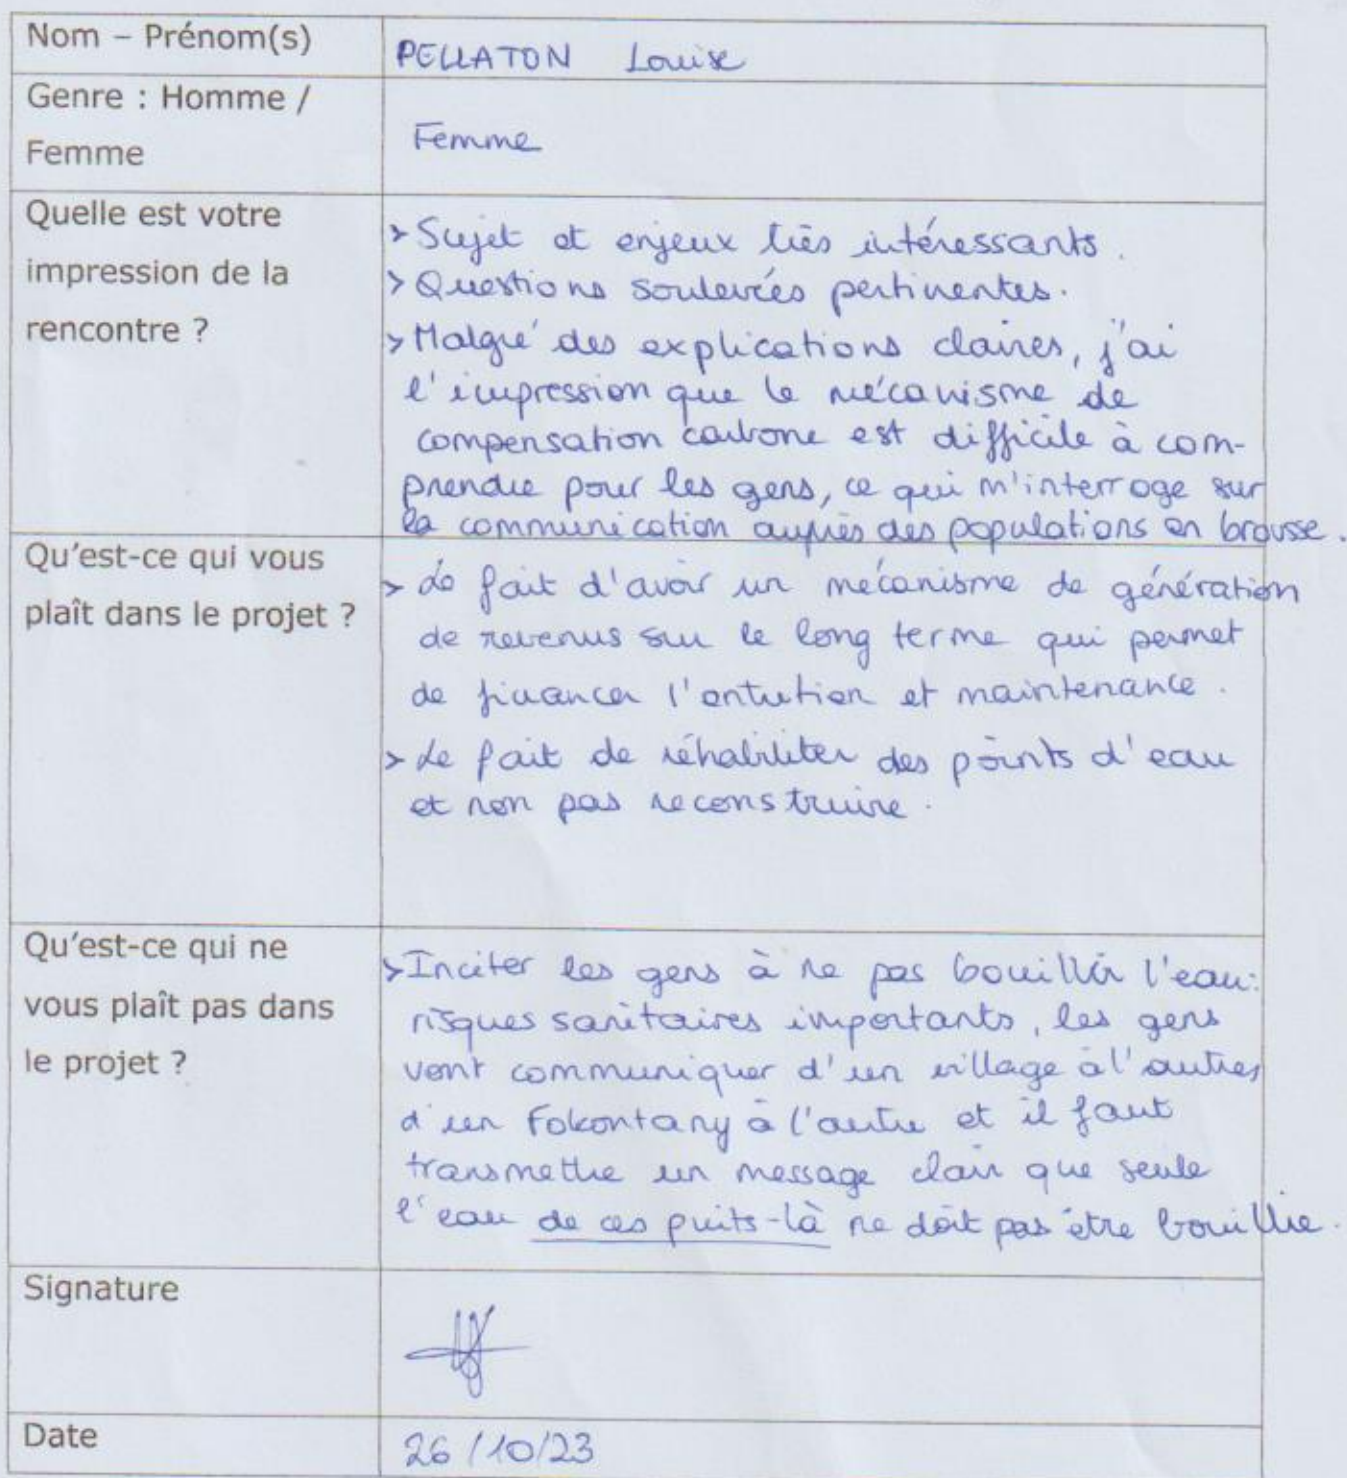 Nom – Prénom(s)
PELLATON Louise
Genre : Homme /
Femme
Femme
Quelle est votre
impression de la
rencontre ?
> Sujet et enjeux très intéressants.
> Questions soulevées pertinentes.
> Malgré des explications claires, j'ai
l'impression que le mécanisme de
compensation carbone est difficile à com-
prendre pour les gens, ce qui m'interroge sur
la communication auprès des populations en brousse.
Qu'est-ce qui vous
plaît dans le projet ?
> Le fait d'avoir un mécanisme de génération
de revenus sur le long terme qui permet
de financer l'entretien et maintenance.
> Le fait de réhabiliter des points d'eau
et non pas reconstruire.
Qu'est-ce qui ne
vous plaît pas dans
le projet ?
> Inciter les gens à ne pas bouillir l'eau:
risques sanitaires importants, les gens
vont communiquer d'un village à l'autre,
d'un Fokontany à l'autre et il faut
transmettre un message clair que seule
l'eau de ces puits-là ne doit pas être bouillie.
Signature
Date
26/10/23